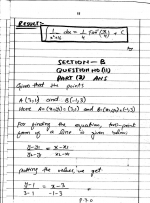 Result:-
∫ 1/(x²+16) dx = 1/4 tan⁻¹(x/4) + C
SECTION - B
QUESTION NO (11)
PART (2) ANS
Given that the points
A (3,1) and B(-1,3)
Here A=(x₁,y₁) = (3,1) and B=(x₂,y₂)=(-1,3)
For finding the equation, two-point
form of a line is given below
(y-y₁)/(y₂-y₁) = (x-x₁)/(x₂-x₁)
putting the values, we get
(y-1)/(3-1) = (x-3)/(-1-3)
P.T.O